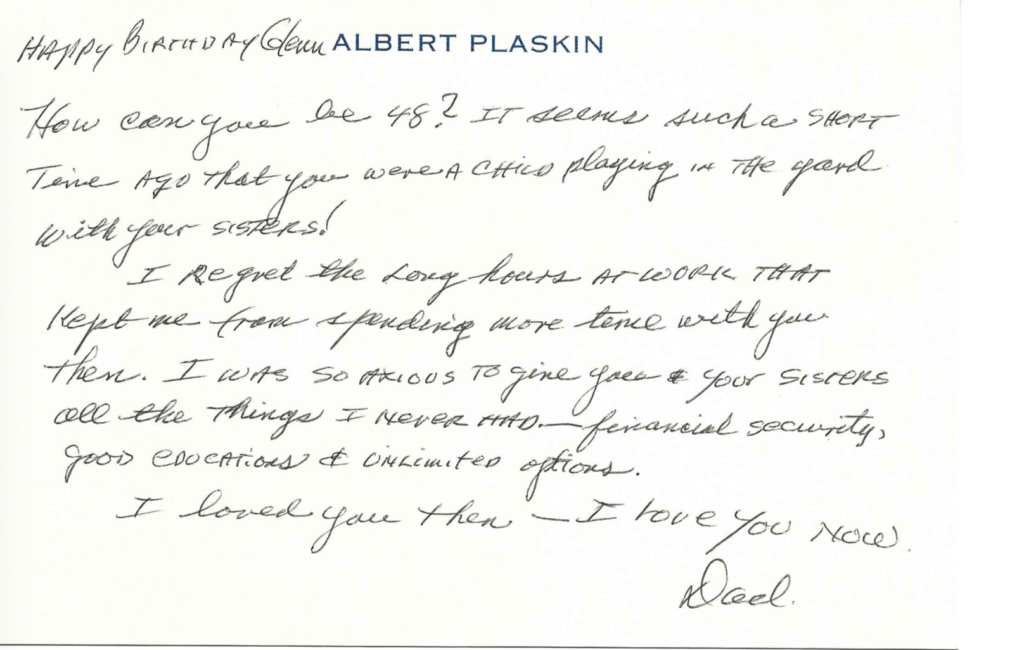 Happy Birthday Glenn ALBERT PLASKIN
How can you be 48? It seems such a short
time ago that you were a child playing in the yard
with your sisters!
I regret the long hours at work that
kept me from spending more time with you
then. I was so axious to give you & your sisters
all the things I never had — financial security,
good educations & unlimited options.
I loved you then — I love you now.
Dad.